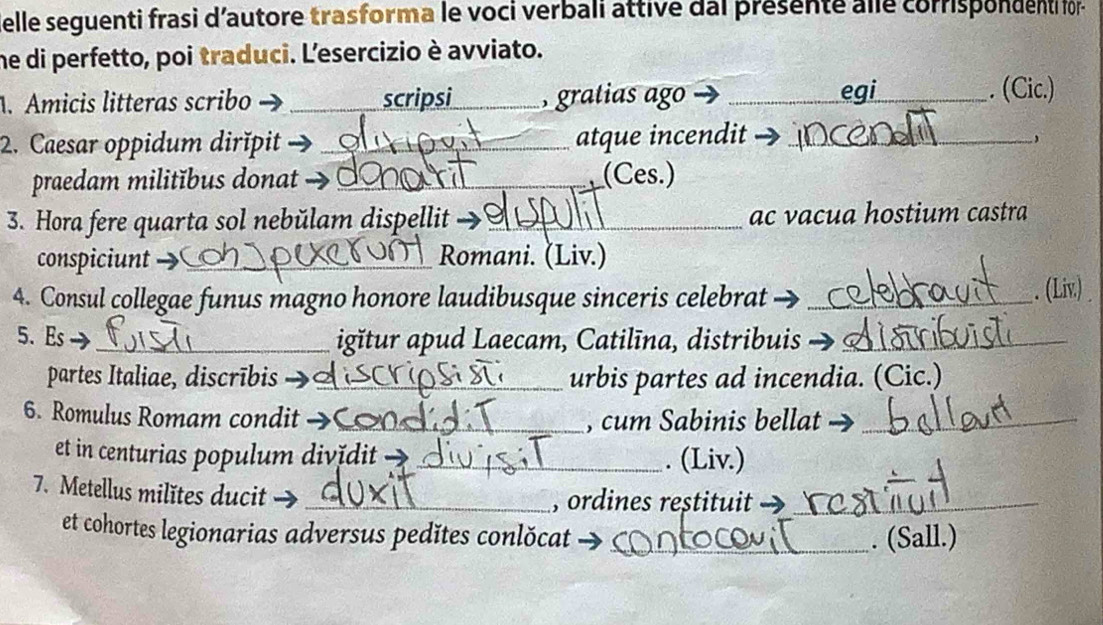 delle seguenti frasi d'autore trasforma le voci verbali attive dal presente alle corrispondenti for-
me di perfetto, poi traduci. L'esercizio è avviato.
1. Amicis litteras scribo → scripsi, gratias ago → egi. (Cic.)
2. Caesar oppidum dirĭpit → diripuit atque incendit → incendit,
praedam militĭbus donat → donarit, (Ces.)
3. Hora fere quarta sol nebŭlam dispellit → dispulit ac vacua hostium castra
conspiciunt → conspexerunt Romani. (Liv.)
4. Consul collegae funus magno honore laudibusque sinceris celebrat → celebravit. (Liv.)
5. Es → fuisti igĭtur apud Laecam, Catilīna, distribuis → distribuisti
partes Italiae, discrībis → discripsisti urbis partes ad incendia. (Cic.)
6. Romulus Romam condit → condidit, cum Sabinis bellat →
et in centurias populum divĭdit → divisit. (Liv.)
7. Metellus milĭtes ducit → duxit, ordines restituit → restituit
et cohortes legionarias adversus pedĭtes conlŏcat → . (Sall.)